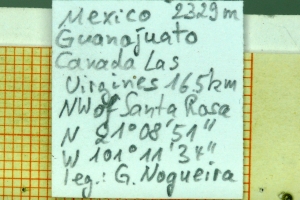 Mexico 2329m
Guanajuato
Canada Las
Virgines 16.5km
NW of Santa Rosa
N 21°08'51"
W 101°11'34"
leg.: G. Nogueira